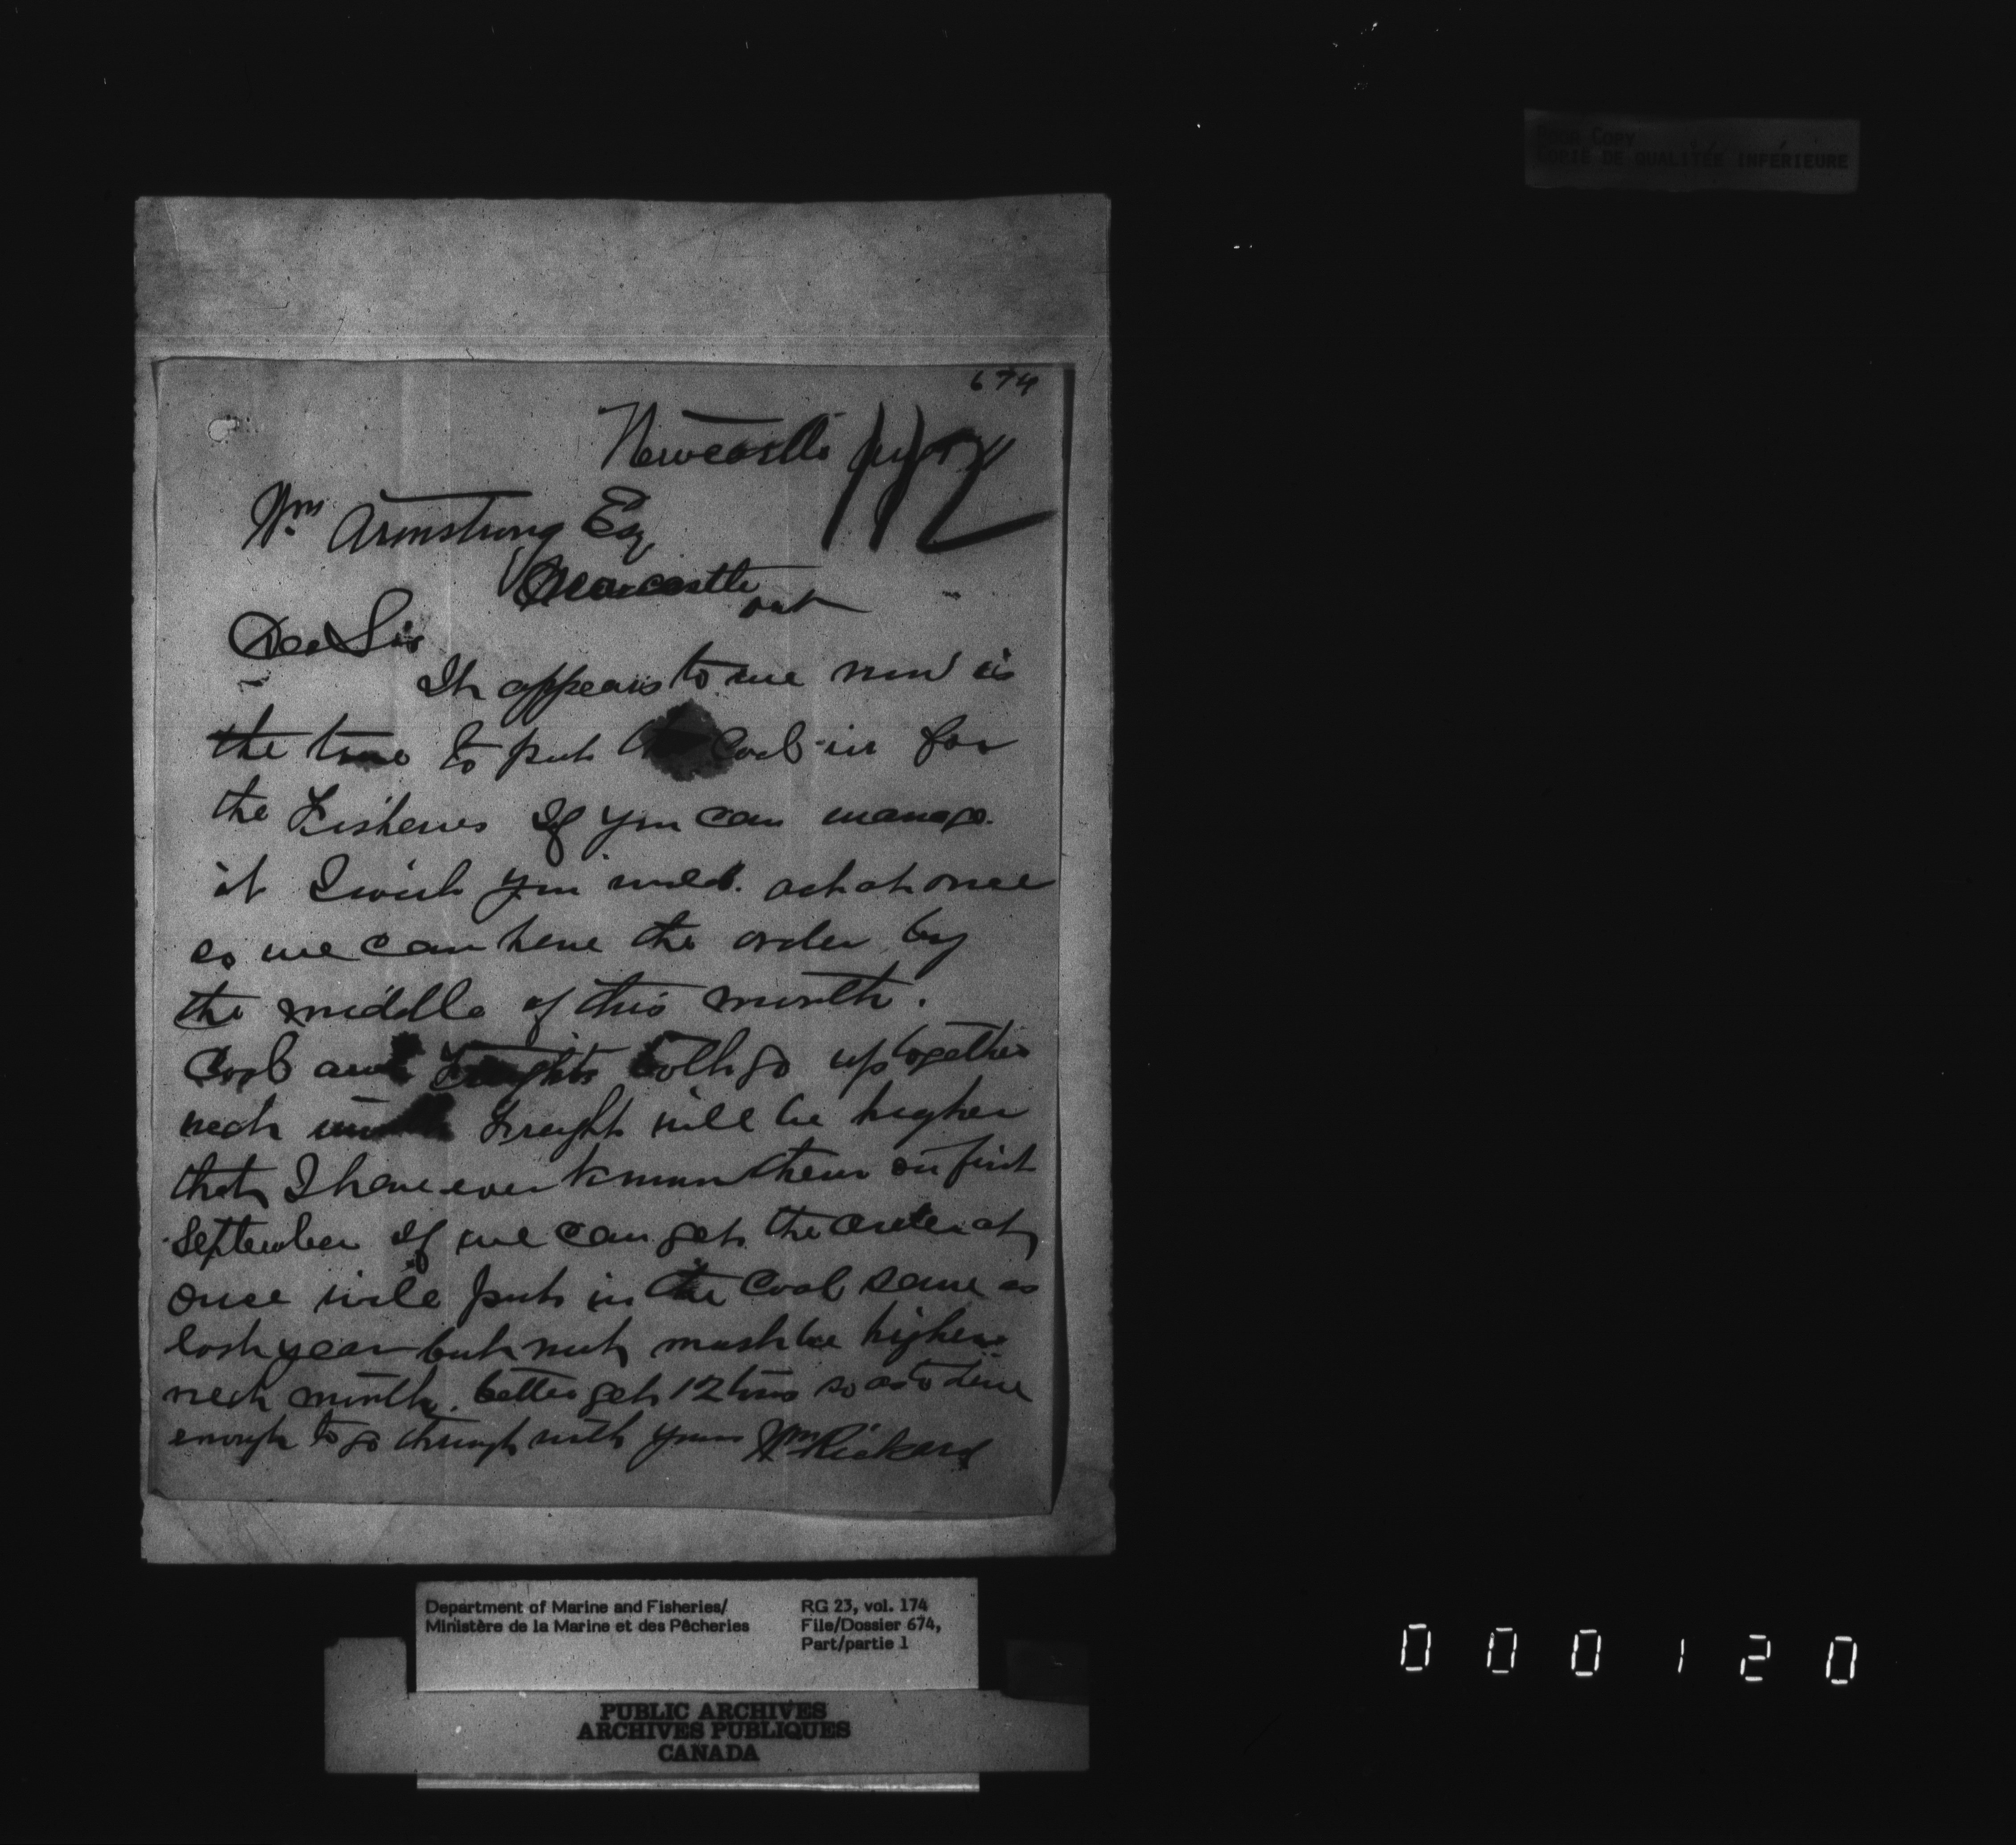 Poor Copy
COPIE DE QUALITÉE INFÉRIEURE
674
Newcastle
112
Wm Armstrong Esq
Newcastle
Ont
Dear Sir
It appears to me now is
the time to put the Coal in for
the Fisheries If you can manage
it I wish you would act at once
so we can have the order by
the middle of this month.
Coal and Freights both go up together
next month Freight will be higher
that I have ever known them on first
September If we can get the order at
once will put in the Coal same as
last year but must be higher
next month. better get 12 tons so as to have
enough to go through with yours Wm Rickard
Department of Marine and Fisheries/
Ministère de la Marine et des Pêcheries
RG 23, vol. 174
File/Dossier 674,
Part/partie 1
PUBLIC ARCHIVES
ARCHIVES PUBLIQUES
CANADA
000120